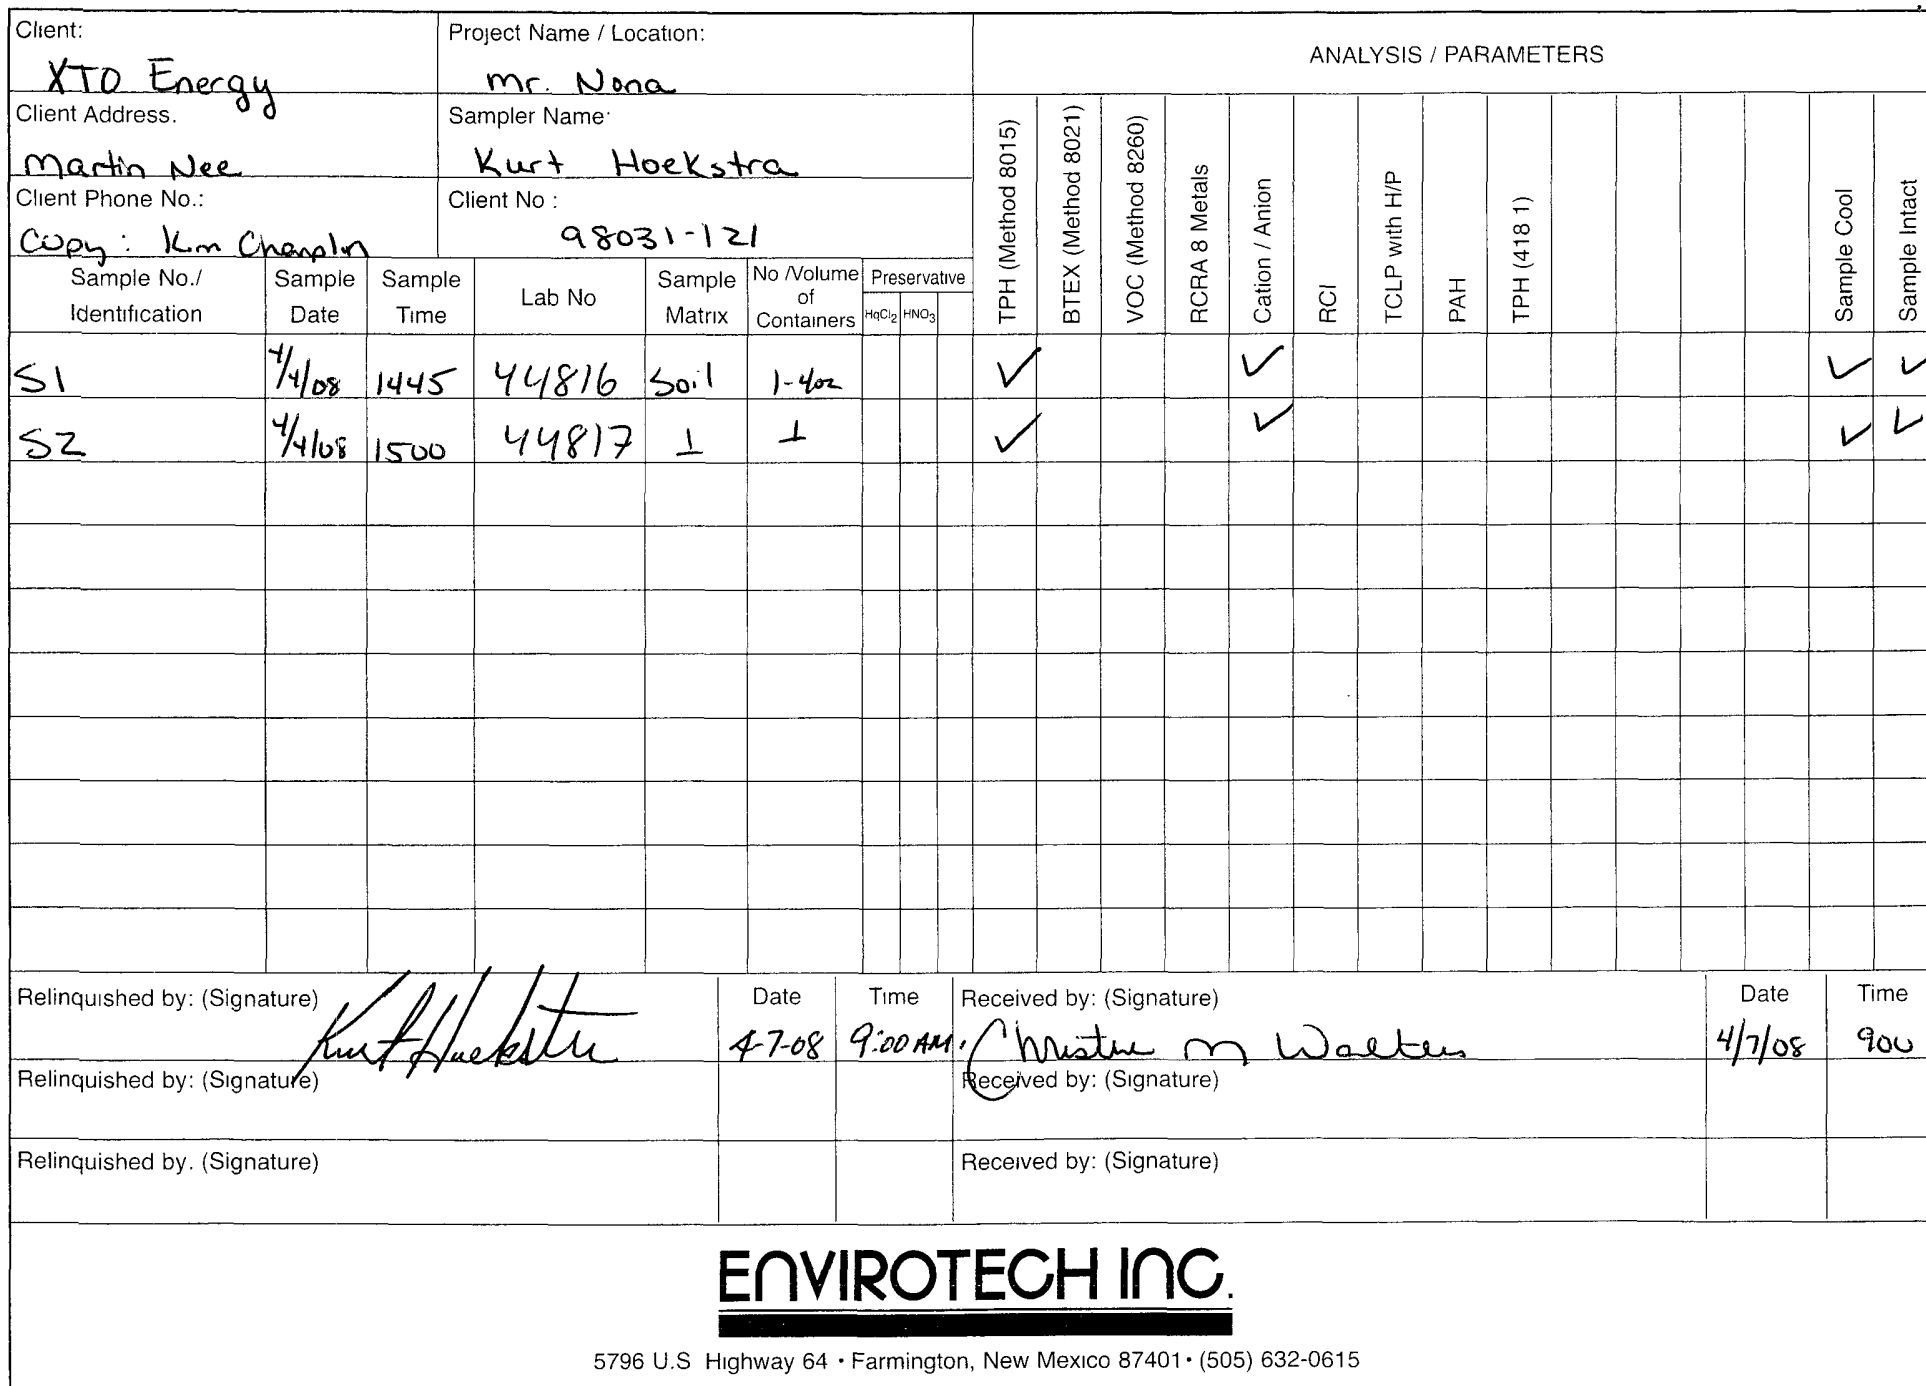 Client:
XTO Energy
Project Name / Location:
Mr. Nona
ANALYSIS / PARAMETERS
Client Address.
Martin Nee
Sampler Name
Kurt Hoekstra
Client Phone No.:
Copy: Kim Champlin
Client No :
98031-121
Sample No./ Identification
Sample Date
Sample Time
Lab No
Sample Matrix
No /Volume of Containers
Preservative
HgCl2 HNO3
TPH (Method 8015)
BTEX (Method 8021)
VOC (Method 8260)
RCRA 8 Metals
Cation / Anion
RCI
TCLP with H/P
PAH
TPH (418 1)
Sample Cool
Sample Intact
S1 4/4/08 1445 44816 Soil 1-4oz ✓ ✓ ✓ ✓
S2 4/4/08 1500 44817 ⊥ ⊥ ✓ ✓ ✓ ✓
Relinquished by: (Signature)
Kurt Hoekstra
Date
4-7-08
Time
9:00 AM
Received by: (Signature)
Christine M Walters
Date
4/7/08
Time
900
Relinquished by: (Signature)
Received by: (Signature)
Relinquished by. (Signature)
Received by: (Signature)
ENVIROTECH INC.
5796 U.S Highway 64 • Farmington, New Mexico 87401 • (505) 632-0615